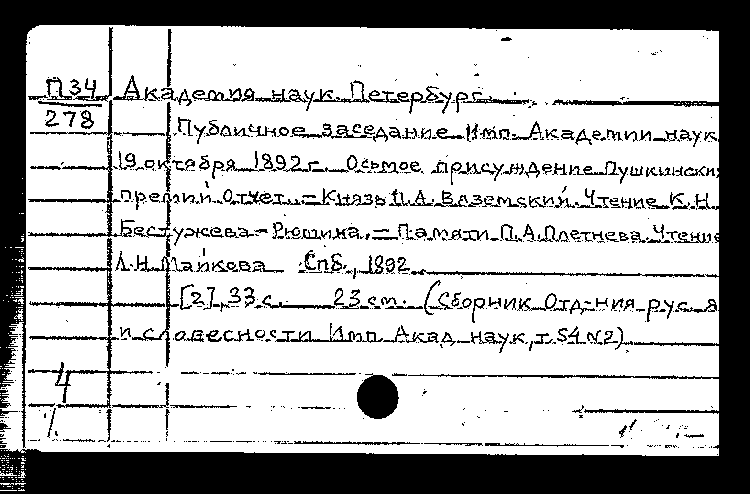 П34 Академия наук. Петербург.
278 Публичное заседание Имп. Академии наук
19 октября 1892 г. Осьмое присуждение Пушкински
премий. Отчет. – Князь П.А. Вяземский. Чтение К.Н.
Бестужева-Рюмина. – Памяти П.А. Плетнева. Чтение
Л.Н. Майкова Спб., 1892.
[2], 33 с. 23 см. (Сборник Отд-ния рус. я
и словесности Имп. Акад. наук, т. 54 №2)
4